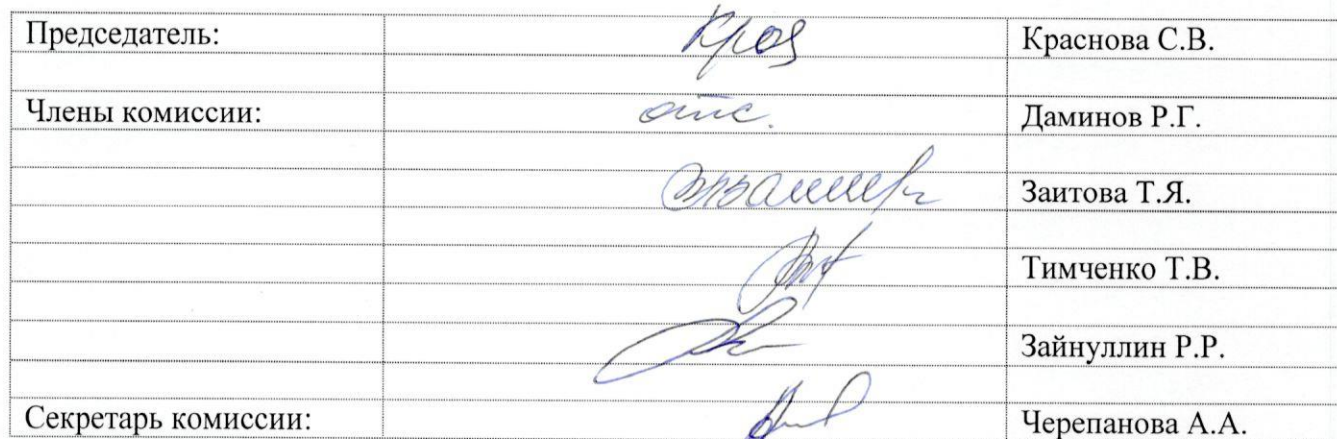 Председатель: Краснова С.В.
Члены комиссии: отс. Даминов Р.Г.
Заитова Т.Я.
Тимченко Т.В.
Зайнуллин Р.Р.
Секретарь комиссии: Черепанова А.А.